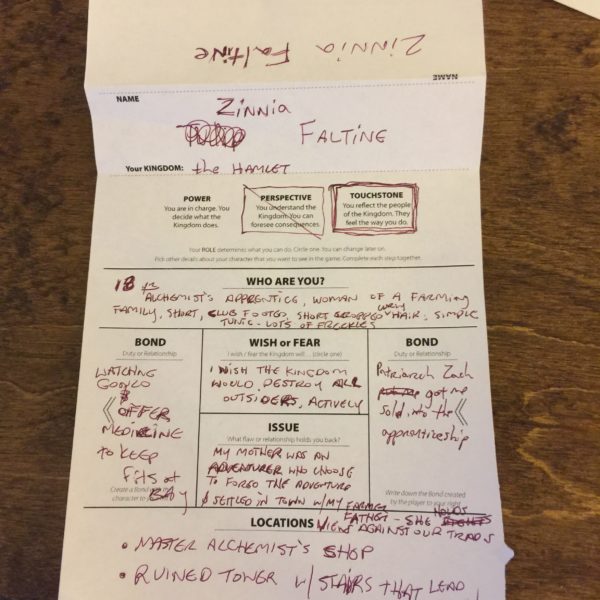 Zinnia Faltine
NAME
NAME
Zinnia
FALTINE
Your KINGDOM: the HAMLET
POWER
You are in charge. You
decide what the
Kingdom does.
PERSPECTIVE
You understand the
Kingdom. You can
foresee consequences.
TOUCHSTONE
You reflect the people
of the Kingdom. They
feel the way you do.
Your ROLE determines what you can do. Circle one. You can change later on.
Pick other details about your character that you want to see in the game. Complete each step together.
WHO ARE YOU?
18
ALCHEMIST'S APPRENTICE, WOMAN OF A FARMING
FAMILY, SHORT, CLUB FOOTED, SHORT CROPPED CURLY HAIR, SIMPLE
TUNIC - LOTS OF FRECKLES
BOND
Duty or Relationship
WATCHING
&
OFFER
MEDICINE
to KEEP
fits at
BAY
Create a Bond
character to
WISH or FEAR
I wish / fear the Kingdom will ... (circle one)
I WISH THE KINGDOM
WOULD DESTROY ALL
OUTSIDERS, ACTIVELY
ISSUE
What flaw or relationship holds you back?
MY MOTHER WAS AN
ADVENTURER WHO CHOOSE
TO FORGO THE ADVENTURE
& SETTLED IN TOWN W/ MY FARMER
FATHER - SHE HOLDS
VIEWS AGAINST OUR TRADS
BOND
Duty or Relationship
Patriarch Zach
got me
sold into the
apprenticeship
Write down the Bond created
by the player to your right
LOCATIONS
• MASTER ALCHEMIST'S SHOP
• RUINED TOWER W/ STAIRS THAT LEAD